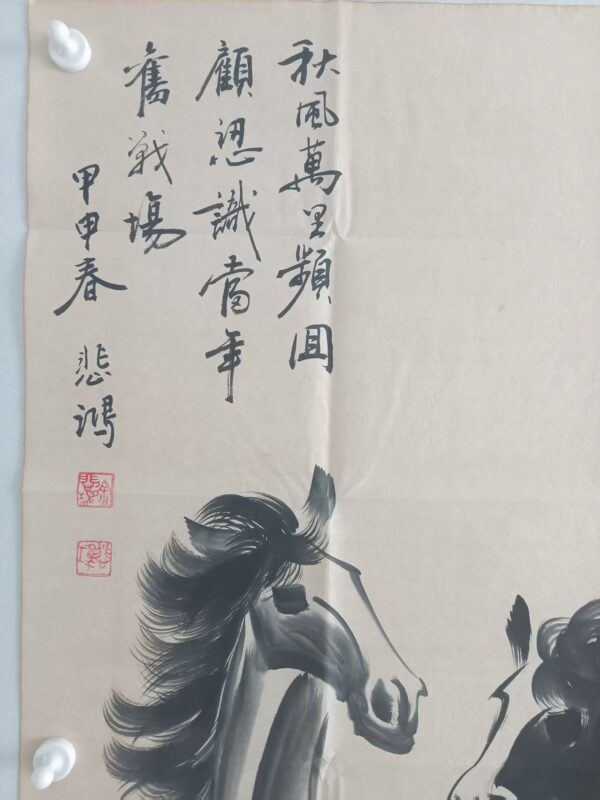 秋風萬里頻回
顧認識當年
舊戰場
甲申春
悲鴻